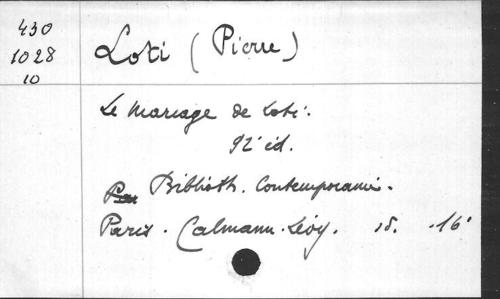 430
1028
10
Loti (Pierre)
Le Mariage de Loti.
92e éd.
Biblioth. Contemporaine.
Paris. Calmann-Lévy. 16°